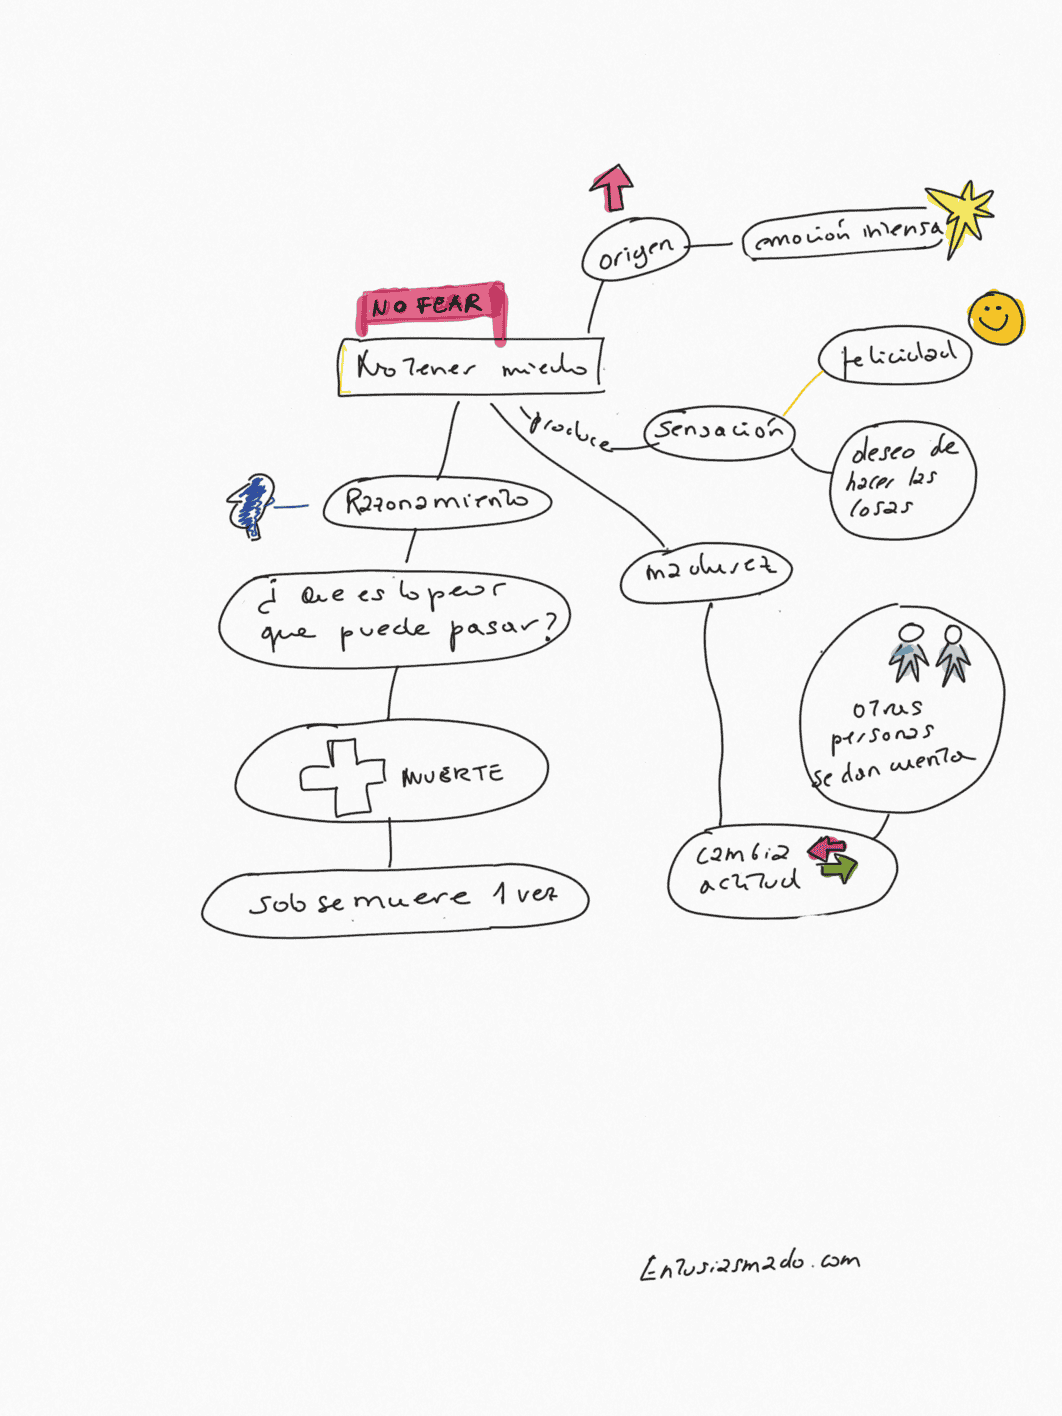 origen
emoción intensa
NO FEAR
No tener miedo
felicidad
produce
sensación
deseo de
hacer las
cosas
Razonamiento
¿ que es lo peor
que puede pasar?
madurez
MUERTE
otras
personas
se dan cuenta
cambia
actitud
solo se muere 1 vez
Entusiasmado.com